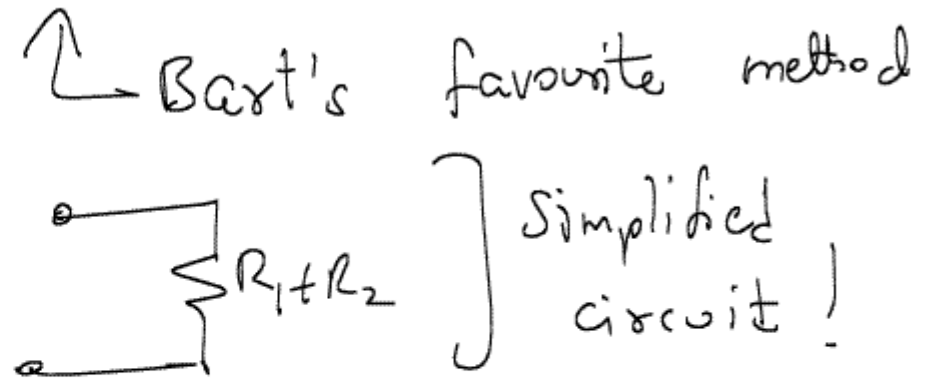 Bart's favourite method
R₁+R₂
Simplified
circuit!